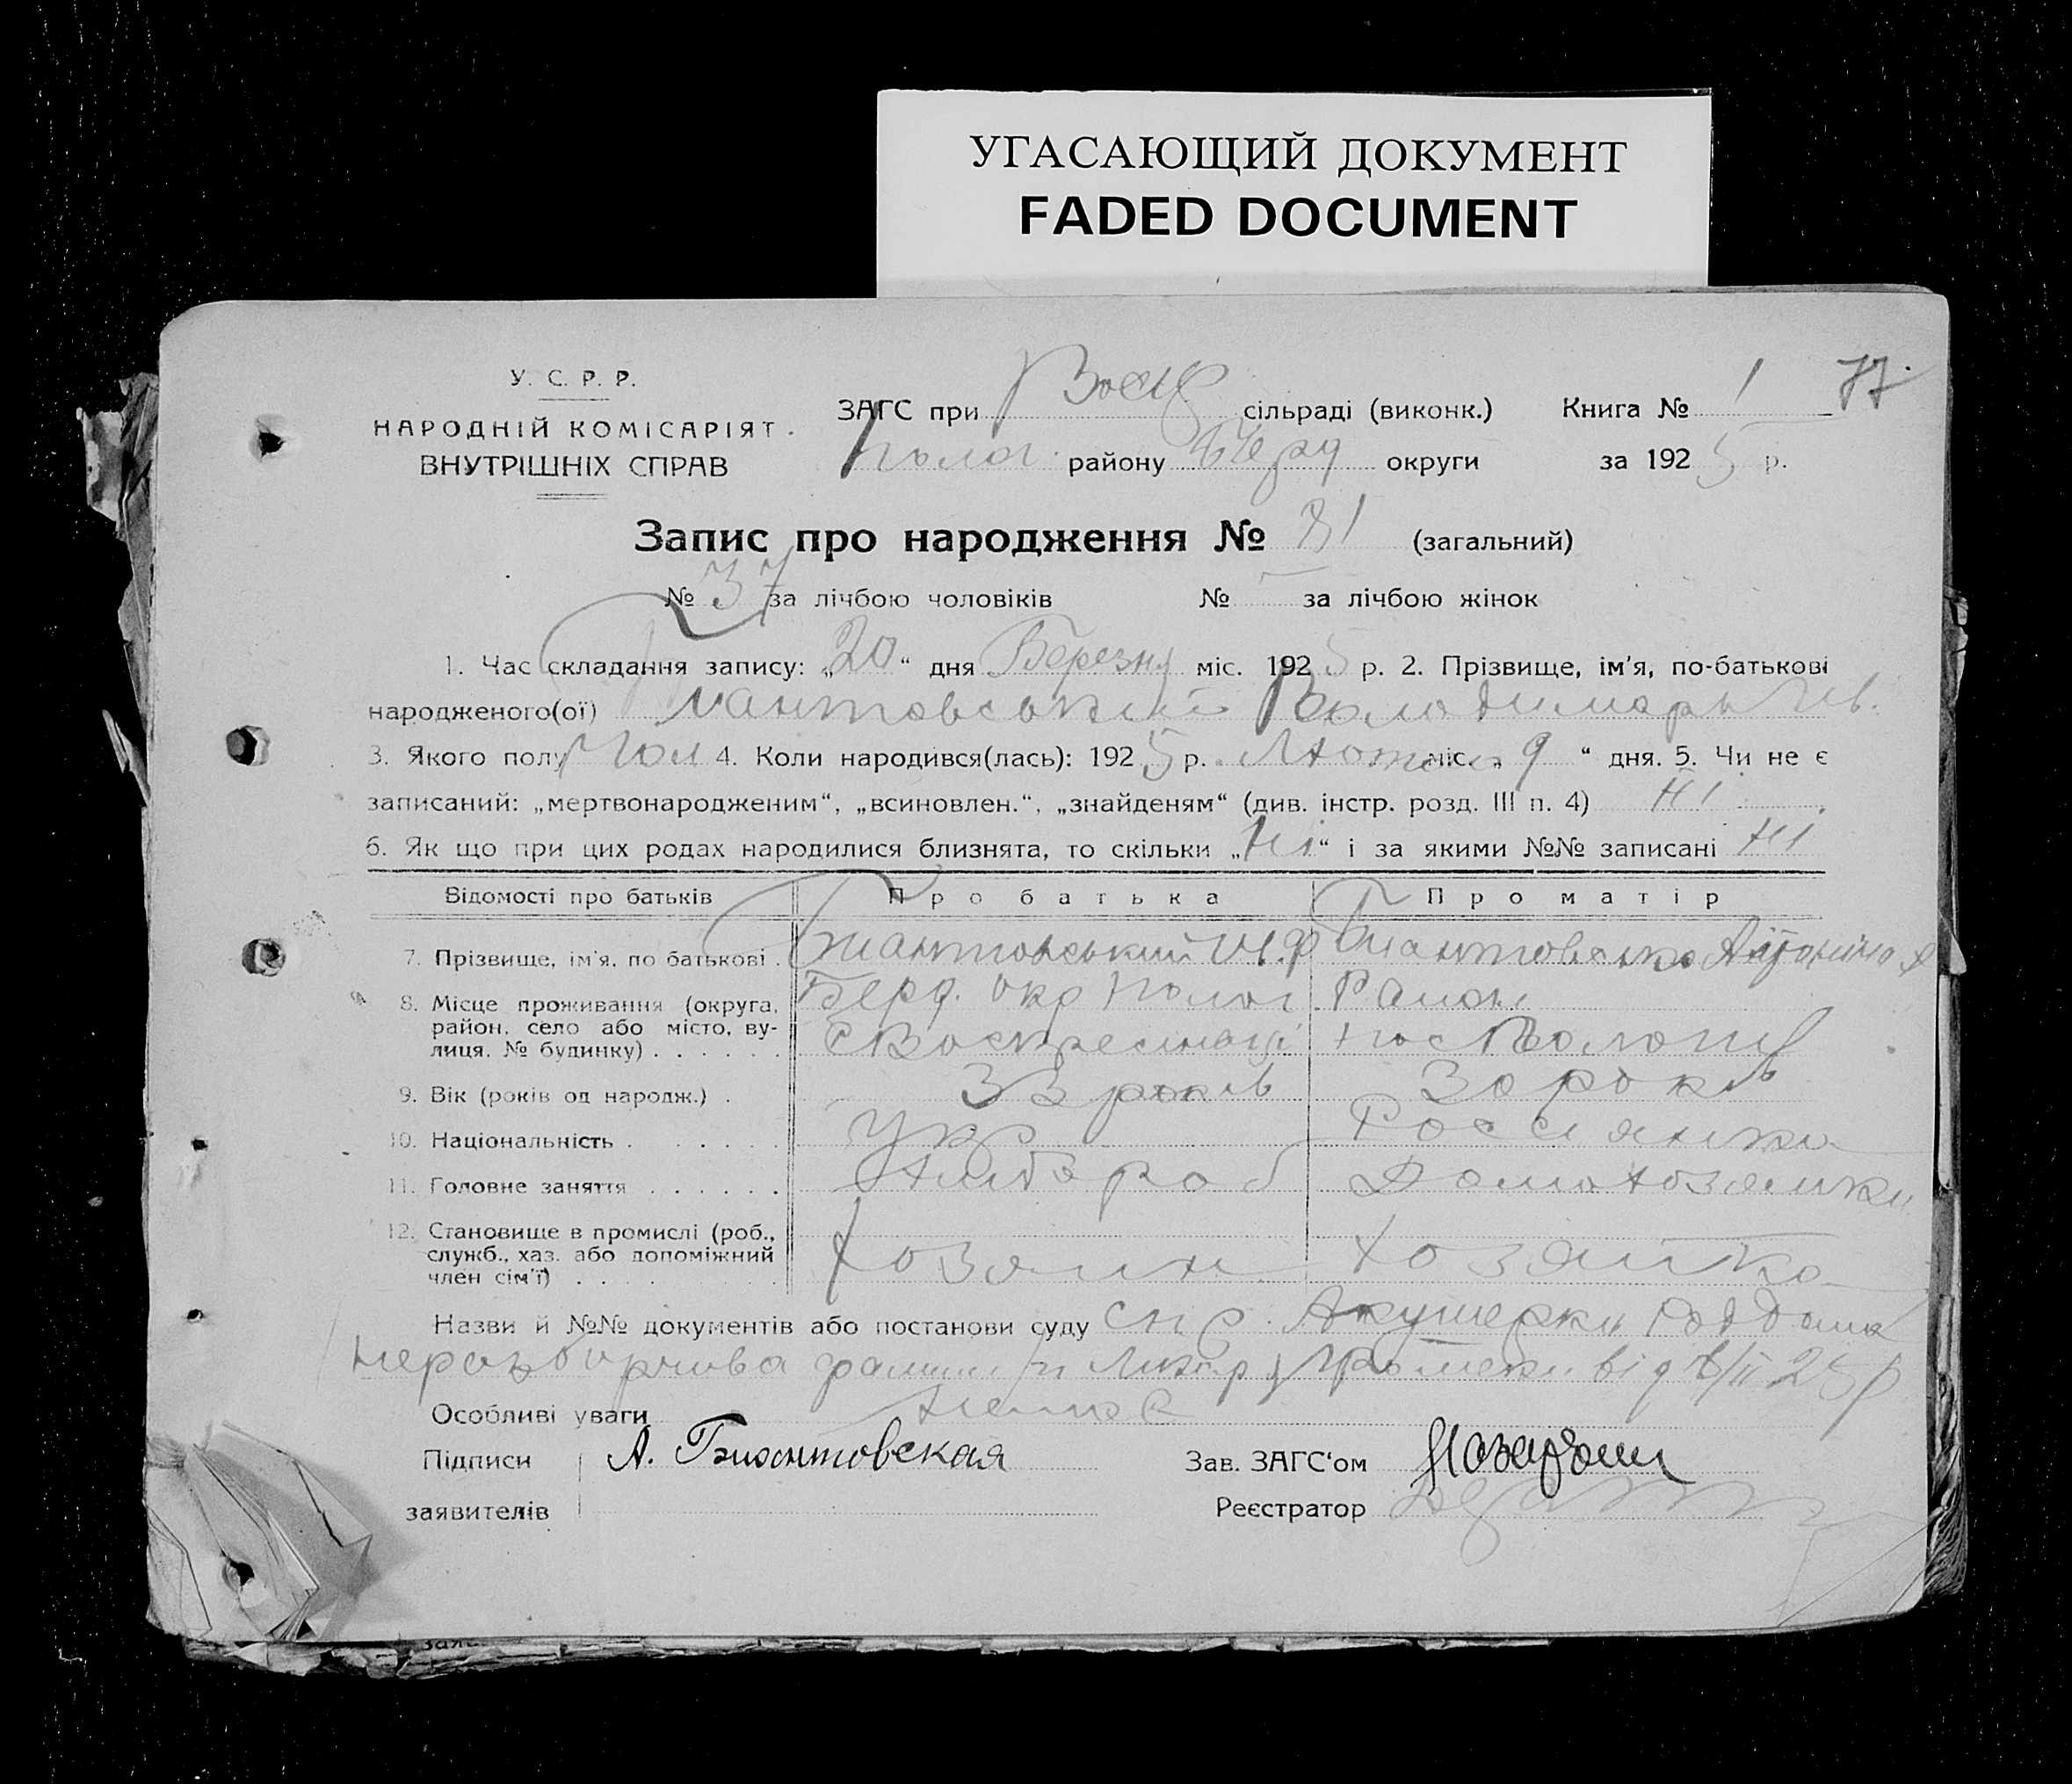 УГАСАЮЩИЙ ДОКУМЕНТ
FADED DOCUMENT
У. С. Р. Р.
НАРОДНІЙ КОМІСАРІЯТ
ВНУТРІШНІХ СПРАВ
ЗАГС при Воскр сільраді (виконк.) Книга № 1 77
Полог. району Берд округи за 1925 р.
Запис про народження № 81 (загальний)
№ 37 за лічбою чоловіків № — за лічбою жінок
1. Час складання запису: „20“ дня Березня міс. 1925 р. 2. Прізвище, ім'я, по-батькові
народженого(ої) Володимиръ Ів.
3. Якого полу Чол 4. Коли народився(лась): 1925 р. Лютого міс. „9“ дня. 5. Чи не є
записаний: „мертвонародженим“, „всиновлен.“, „знайденям“ (див. інстр. розд. III п. 4) Ні
6. Як що при цих родах народилися близнята, то скільки „Ні“ і за якими №№ записані Ні
Відомості про батьків Про батька Про матір
7. Прізвище, ім'я, по батькові
8. Місце проживання (округа, Берд. окр Полог Район
район, село або місто, ву- с Воскресенці пос Пологив
лиця. № будинку)
9. Вік (років од народж.) 33 років 30 років
10. Національність Укр Россиянка
11. Головне заняття Хлібороб Домохозяйка
12. Становище в промислі (роб.,
служб., хаз. або допоміжний Хозяин Хозяйка
член сім'ї)
Назви й №№ документів або постанови суду Акушерки Роддома
від /II 25р
Особливі уваги немае
Підписи А. Бжантовская Зав. ЗАГС‘ом
заявителів Реєстратор